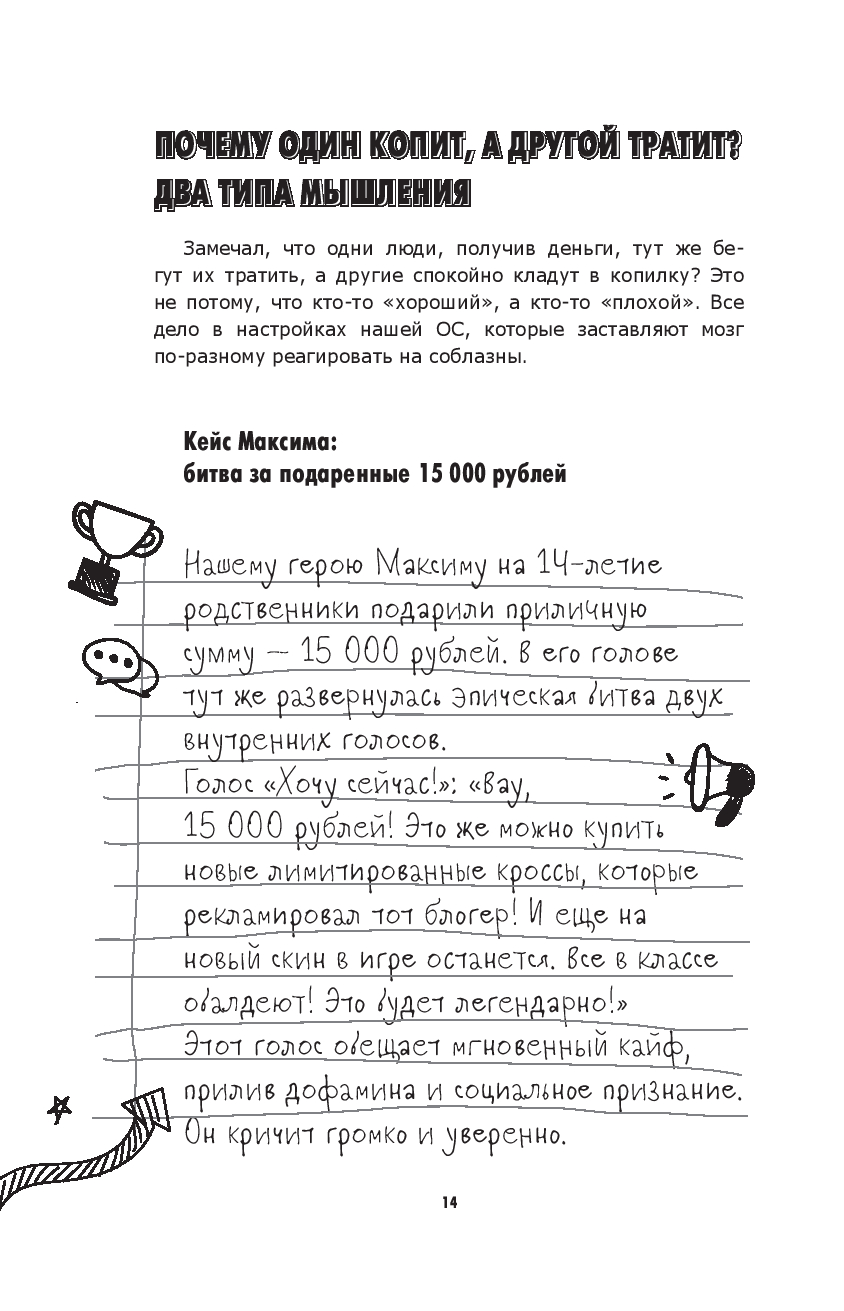 ПОЧЕМУ ОДИН КОПИТ, А ДРУГОЙ ТРАТИТ?
ДВА ТИПА МЫШЛЕНИЯ
Замечал, что одни люди, получив деньги, тут же бе-
гут их тратить, а другие спокойно кладут в копилку? Это
не потому, что кто-то «хороший», а кто-то «плохой». Все
дело в настройках нашей ОС, которые заставляют мозг
по-разному реагировать на соблазны.
Кейс Максима:
битва за подаренные 15 000 рублей
Нашему герою Максиму на 14-летие
родственники подарили приличную
сумму — 15 000 рублей. В его голове
тут же развернулась эпическая битва двух
внутренних голосов.
Голос «Хочу сейчас!»: «Вау,
15 000 рублей! Это же можно купить
новые лимитированные кроссы, которые
рекламировал тот блогер! И еще на
новый скин в игре останется. Все в классе
обалдеют! Это будет легендарно!»
Этот голос обещает мгновенный кайф,
прилив дофамина и социальное признание.
Он кричит громко и уверенно.
14